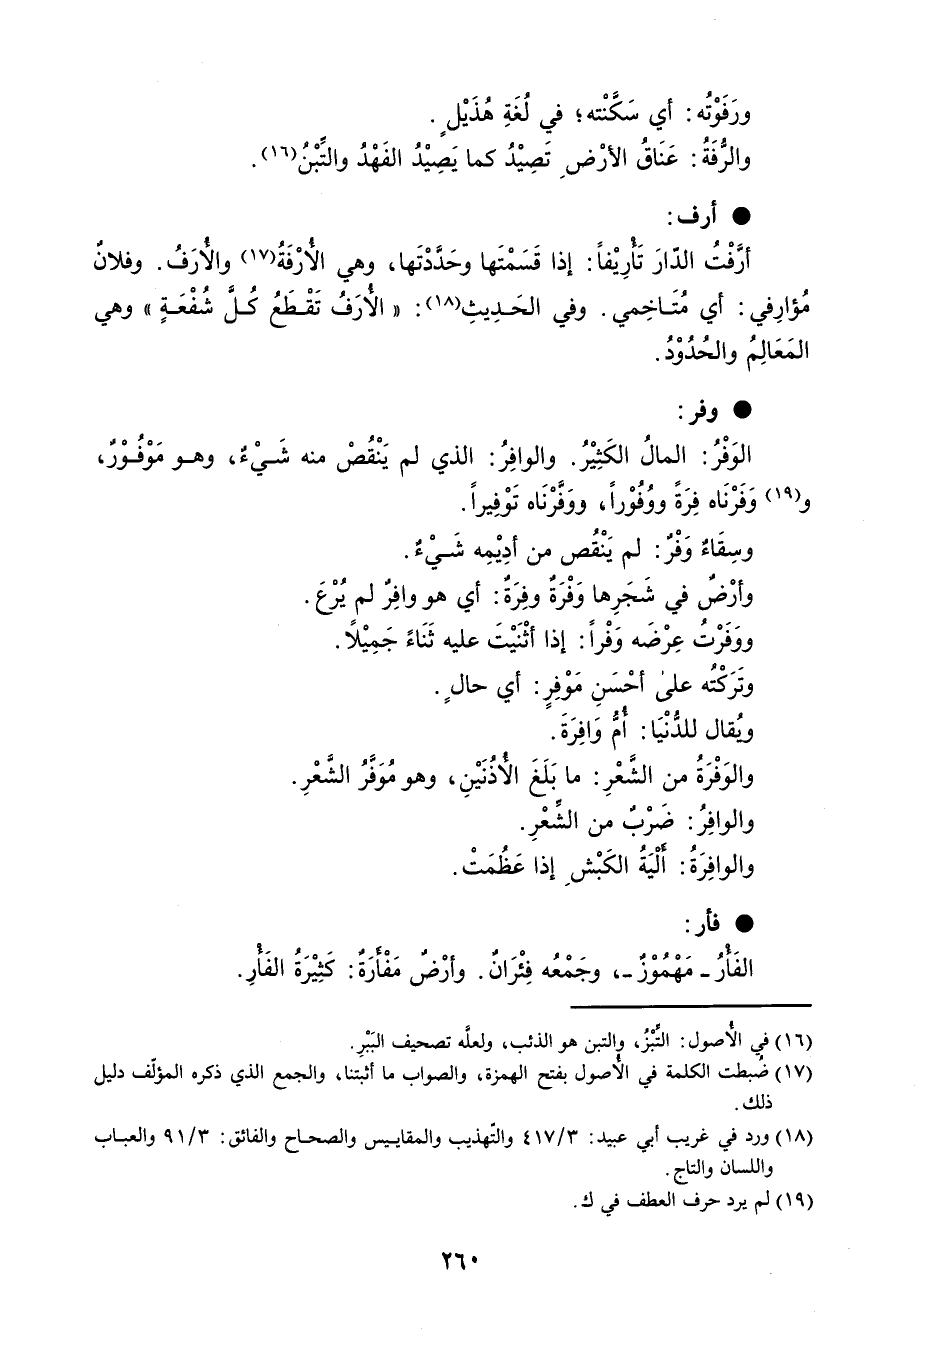 ورَفَوْتُه: أي سَكَّنْته؛ في لُغَةِ هُذَيْلٍ.
والرُّفَةُ: عَنَاقُ الأرْضِ تَصِيْدُ كما يَصِيْدُ الفَهْدُ والتِّبْنُ(١٦).
● أرف:
أرَّفْتُ الدّارَ تَأْرِيْفاً: إذا قَسَمْتَها وحَدَّدْتَها، وهي الأُرْفَةُ(١٧) والأُرَفُ. وفلانٌ
مُؤارِفي: أي مُتَاخِمي. وفي الحَدِيثِ(١٨): «الأُرَفُ تَقْطَعُ كُلَّ شُفْعَةٍ» وهي
المَعَالِمُ والحُدُوْدُ.
● وفر:
الوَفْرُ: المالُ الكَثِيْرُ. والوافِرُ: الذي لم يَنْقُصْ منه شَيْءٌ، وهو مَوْفُوْرٌ،
و(١٩) وَفَرْنَاه فِرَةً ووُفُوْراً، ووَفَّرْنَاه تَوْفِيراً.
وسِقَاءٌ وَفْرٌ: لم يَنْقُص من أدِيْمِه شَيْءٌ.
وأرْضٌ في شَجَرِها وَفْرَةٌ وفِرَةٌ: أي هو وافِرٌ لم يُرْعَ.
ووَفَرْتُ عِرْضَه وَفْراً: إذا أثْنَيْتَ عليه ثَنَاءً جَمِيْلًا.
وتَرَكْتُه علىٰ أحْسَنِ مَوْفِرٍ: أي حالٍ.
ويُقال للدُّنْيَا: أُمُّ وَافِرَةَ.
والوَفْرَةُ من الشَّعْرِ: ما بَلَغَ الأُذُنَيْنِ، وهو مُوَفَّرُ الشَّعْرِ.
والوافِرُ: ضَرْبٌ من الشِّعْرِ.
والوافِرَةُ: أَلْيَةُ الكَبْشِ إذا عَظُمَتْ.
● فأر:
الفَأْرُ ـ مَهْمُوْزٌ ـ، وجَمْعُه فِئْرَانٌ. وأرْضٌ مَفْأَرَةٌ: كَثِيْرَةُ الفَأْرِ.
(١٦) في الأُصول: التِّبْزُ، والتبن هو الذئب، ولعلَّه تصحيف البَبْرِ.
(١٧) ضُبطت الكلمة في الأُصول بفتح الهمزة، والصواب ما أثبتنا، والجمع الذي ذكره المؤلّف دليل
ذلك.
(١٨) ورد في غريب أبي عبيد: ٤١٧/٣ والتّهذيب والمقاييس والصحاح والفائق: ٩١/٣ والعباب
واللسان والتاج.
(١٩) لم يرد حرف العطف في ك.
٢٦٠